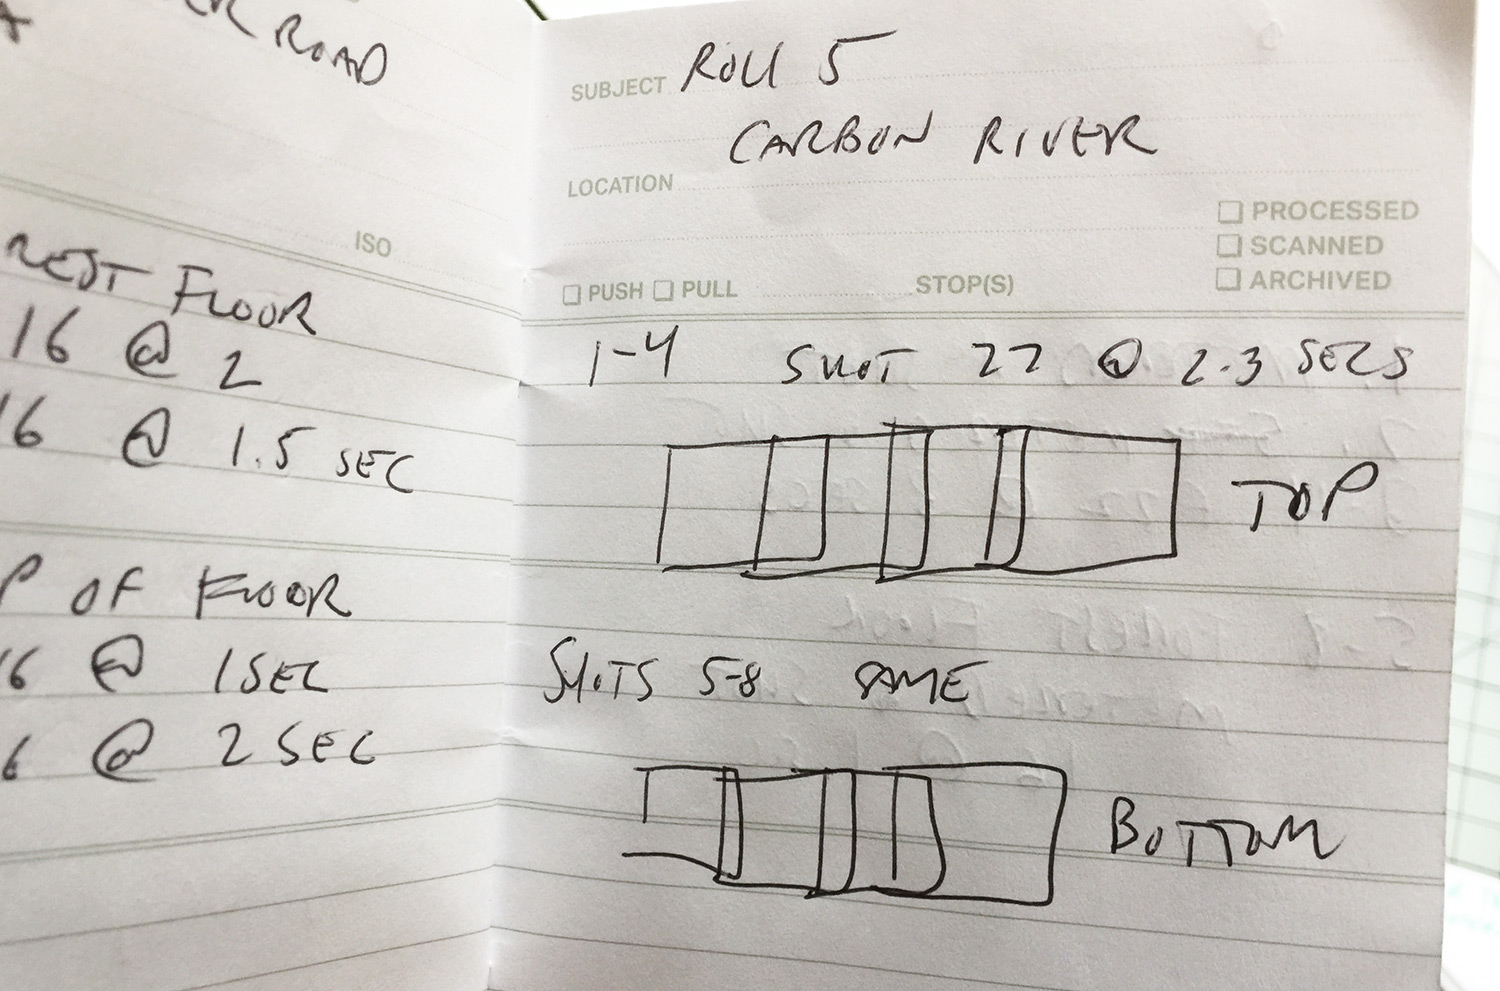 ROAD
ISO
FLOOR
16 @ 2
16 @ 1.5 SEC
OF FLOOR
6 @ 1 SEC
6 @ 2 SEC
SUBJECT ROLL 5
CARBON RIVER
LOCATION
PROCESSED
SCANNED
ARCHIVED
PUSH PULL STOP(S)
1-4 SHOT 22 @ 2.3 SECS
TOP
SHOTS 5-8 SAME
BOTTOM